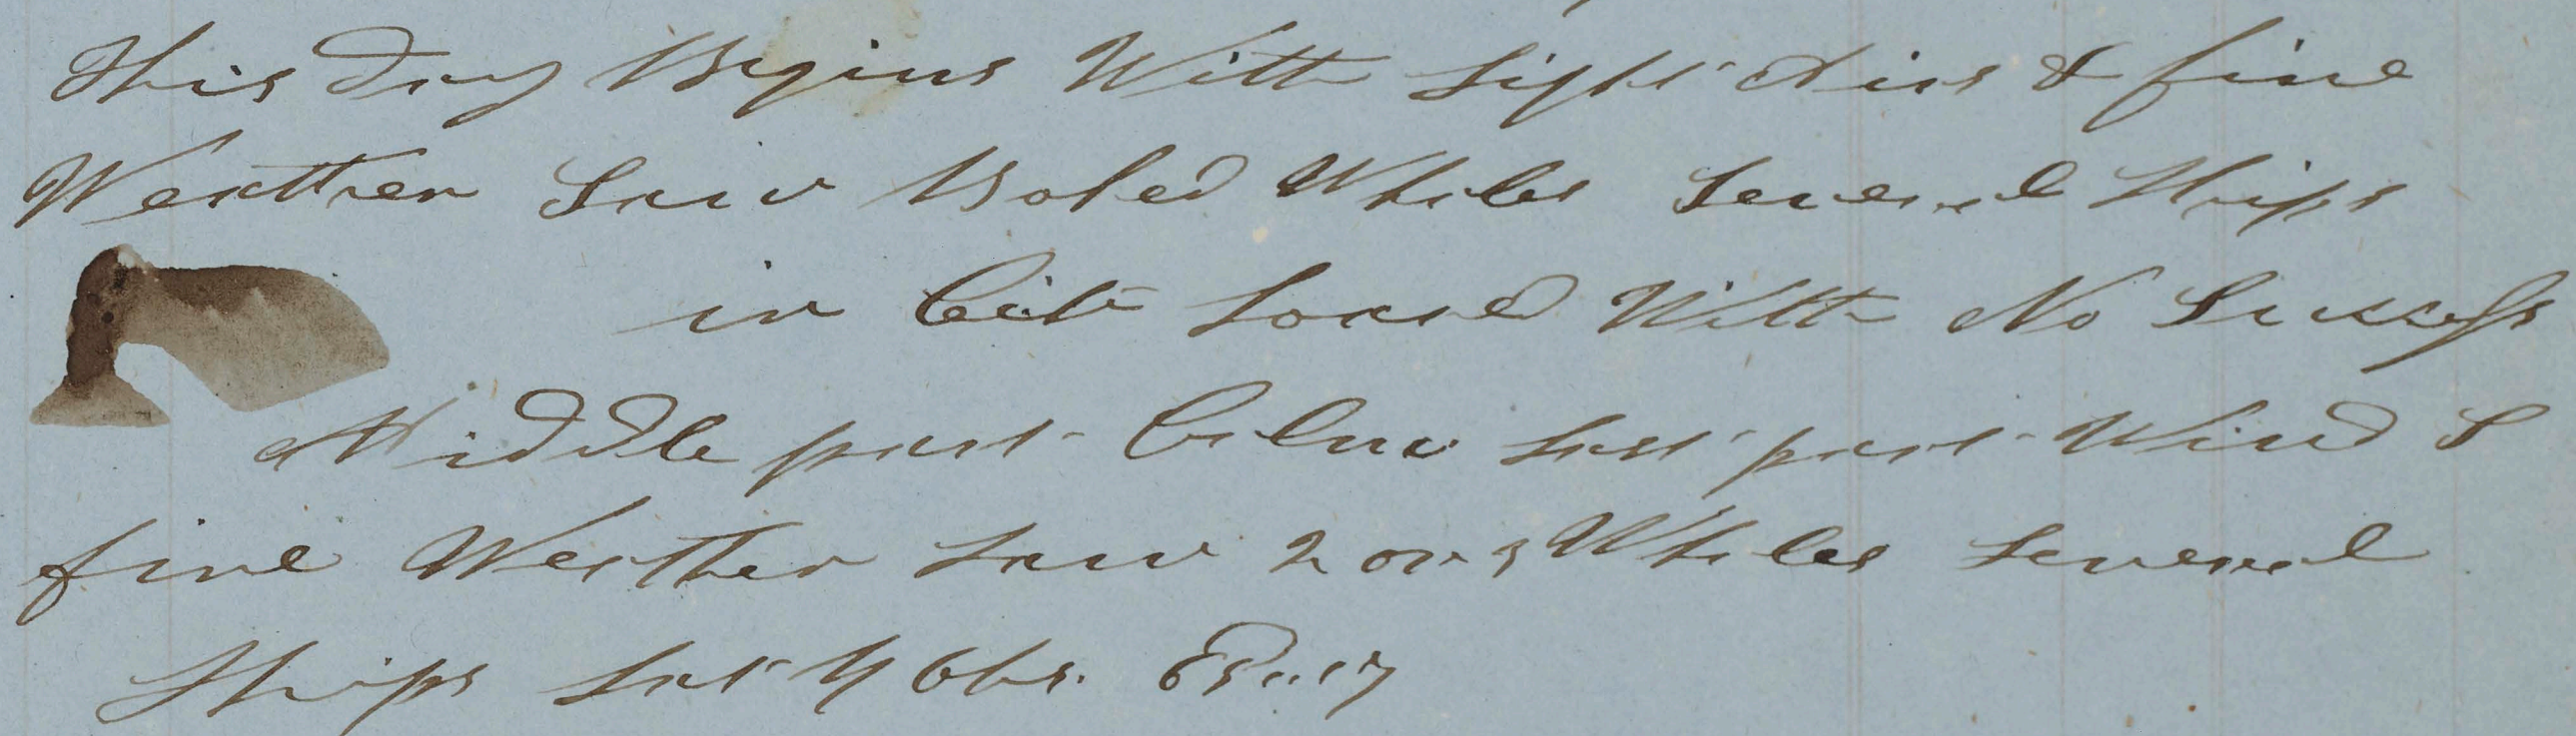 This day Begins With Light Airs & fine
Weather Saw Bohed Whiles Several Ships
in Cite Loared With No Sucsess
Middle part Calm last part Wind S
fine Weather Saw 2 ors Whiles Several
Ships Lat by Obs. 65..17